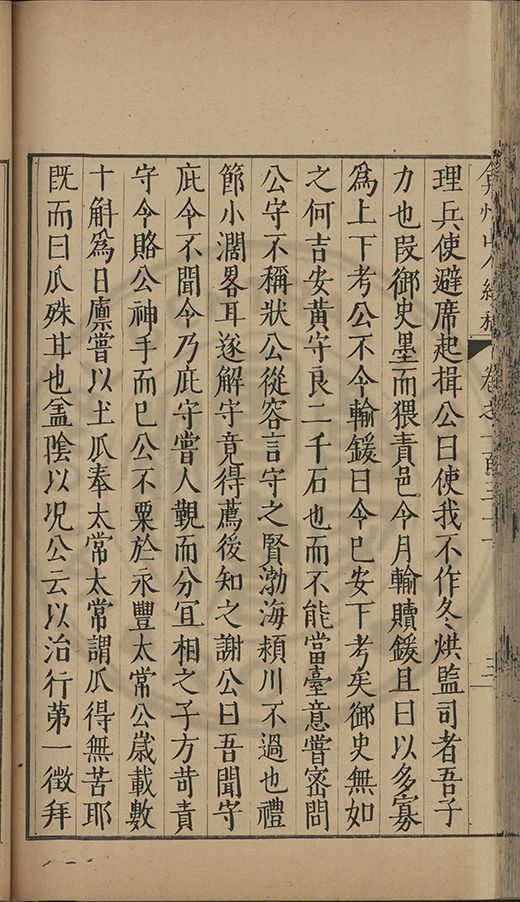 理兵使避席起揖公曰使我不作冬烘監司者吾子
力也叚御史墨而猥責邑令月輸贖鍰且曰以多寡
爲上下考公不令輸鍰曰令已安下考矣御史無如
之何吉安黃守良二千石也而不能當臺意嘗密問
公守不稱狀公從容言守之賢渤海潁川不過也禮
節小濶畧耳遂解守竟得薦後知之謝公曰吾聞守
庇令不聞令乃庇守嘗人覲而分宜相之子方苛責
守令賂公神手而已公不粟於永豐太常公歲載數
十斛爲日廩嘗以土瓜奉太常太常謂瓜得無苦耶
旣而曰瓜殊耳也盖陰以况公云以治行第一徵拜
卷之一百三十
三